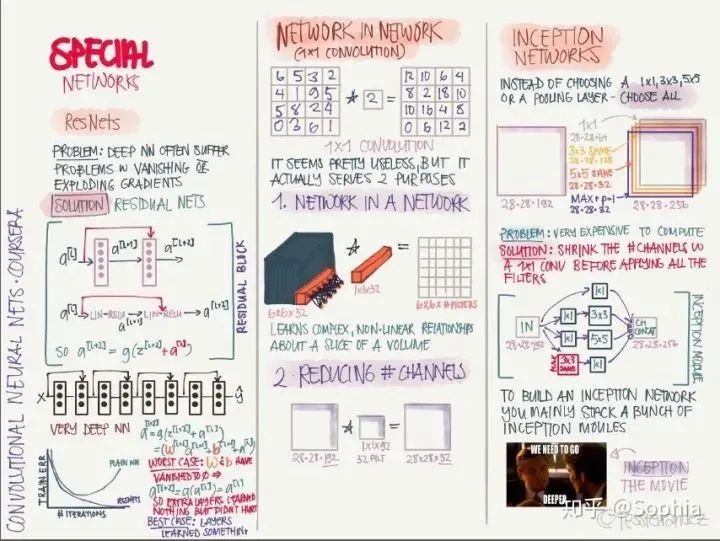 CONVOLUTIONAL NEURAL NETS · COURSERA
SPECIAL
NETWORKS
ResNets
PROBLEM: DEEP NN OFTEN SUFFER
PROBLEMS W VANISHING OR
EXPLODING GRADIENTS
SOLUTION RESIDUAL NETS
a[l] a[l+1] a[l+2]
a[l] LIN-RELU LIN-RELU a[l+2]
a[l+1]
SO a[l+2] = g(z[l+2] + a[l])
RESIDUAL BLOCK
X ŷ
VERY DEEP NN
TRAIN ERR
PLAIN NN
RESNETS
# ITERATIONS
a[l+2] = g(z[l+2] + a[l])
WORST CASE: W & b HAVE
VANISHED TO 0 ⇒
a[l+2] = g(a[l]) = a[l]
SO EXTRA LAYERS LEARNED
NOTHING BUT DIDNT HURT
BEST CASE: LAYERS
LEARNED SOMETHING
NETWORK IN NETWORK
(1×1 CONVOLUTION)
6 5 3 2
4 1 9 5
5 8 2 4
0 3 6 1
* 2 =
12 10 6 4
8 2 18 10
10 16 4 8
0 6 12 2
1×1 CONVOLUTION
IT SEEMS PRETTY USELESS, BUT IT
ACTUALLY SERVES 2 PURPOSES
1. NETWORK IN A NETWORK
* =
6×6×32
1×1×32
6×6×#FILTERS
LEARNS COMPLEX, NON-LINEAR RELATIONSHIPS
ABOUT A SLICE OF A VOLUME
2 REDUCING # CHANNELS
* =
28·28·192
1×1×192
32 FILT
28×28×32
INCEPTION
NETWORKS
INSTEAD OF CHOOSING A 1×1, 3×3, 5×5
OR A POOLING LAYER - CHOOSE ALL
1×1
28·28·64
3×3 SAME
28·28·128
5×5 SAME
28·28·32
MAX + P=1
28·28·32
28·28·192
28·28·256
PROBLEM: VERY EXPENSIVE TO COMPUTE
SOLUTION: SHRINK THE #CHANNELS W
A 1×1 CONV BEFORE APPLYING ALL THE
FILTERS
1×1
1×1 3×3
IN
28·28·192
1×1 5×5
CH
CONCAT
28·28·256
3×3
SAME
1×1
INCEPTION MODULE
TO BUILD AN INCEPTION NETWORK
YOU MAINLY STACK A BUNCH OF
INCEPTION MOULES
WE NEED TO GO
DEEPER
INCEPTION
THE MOVIE
知乎 @Sophia